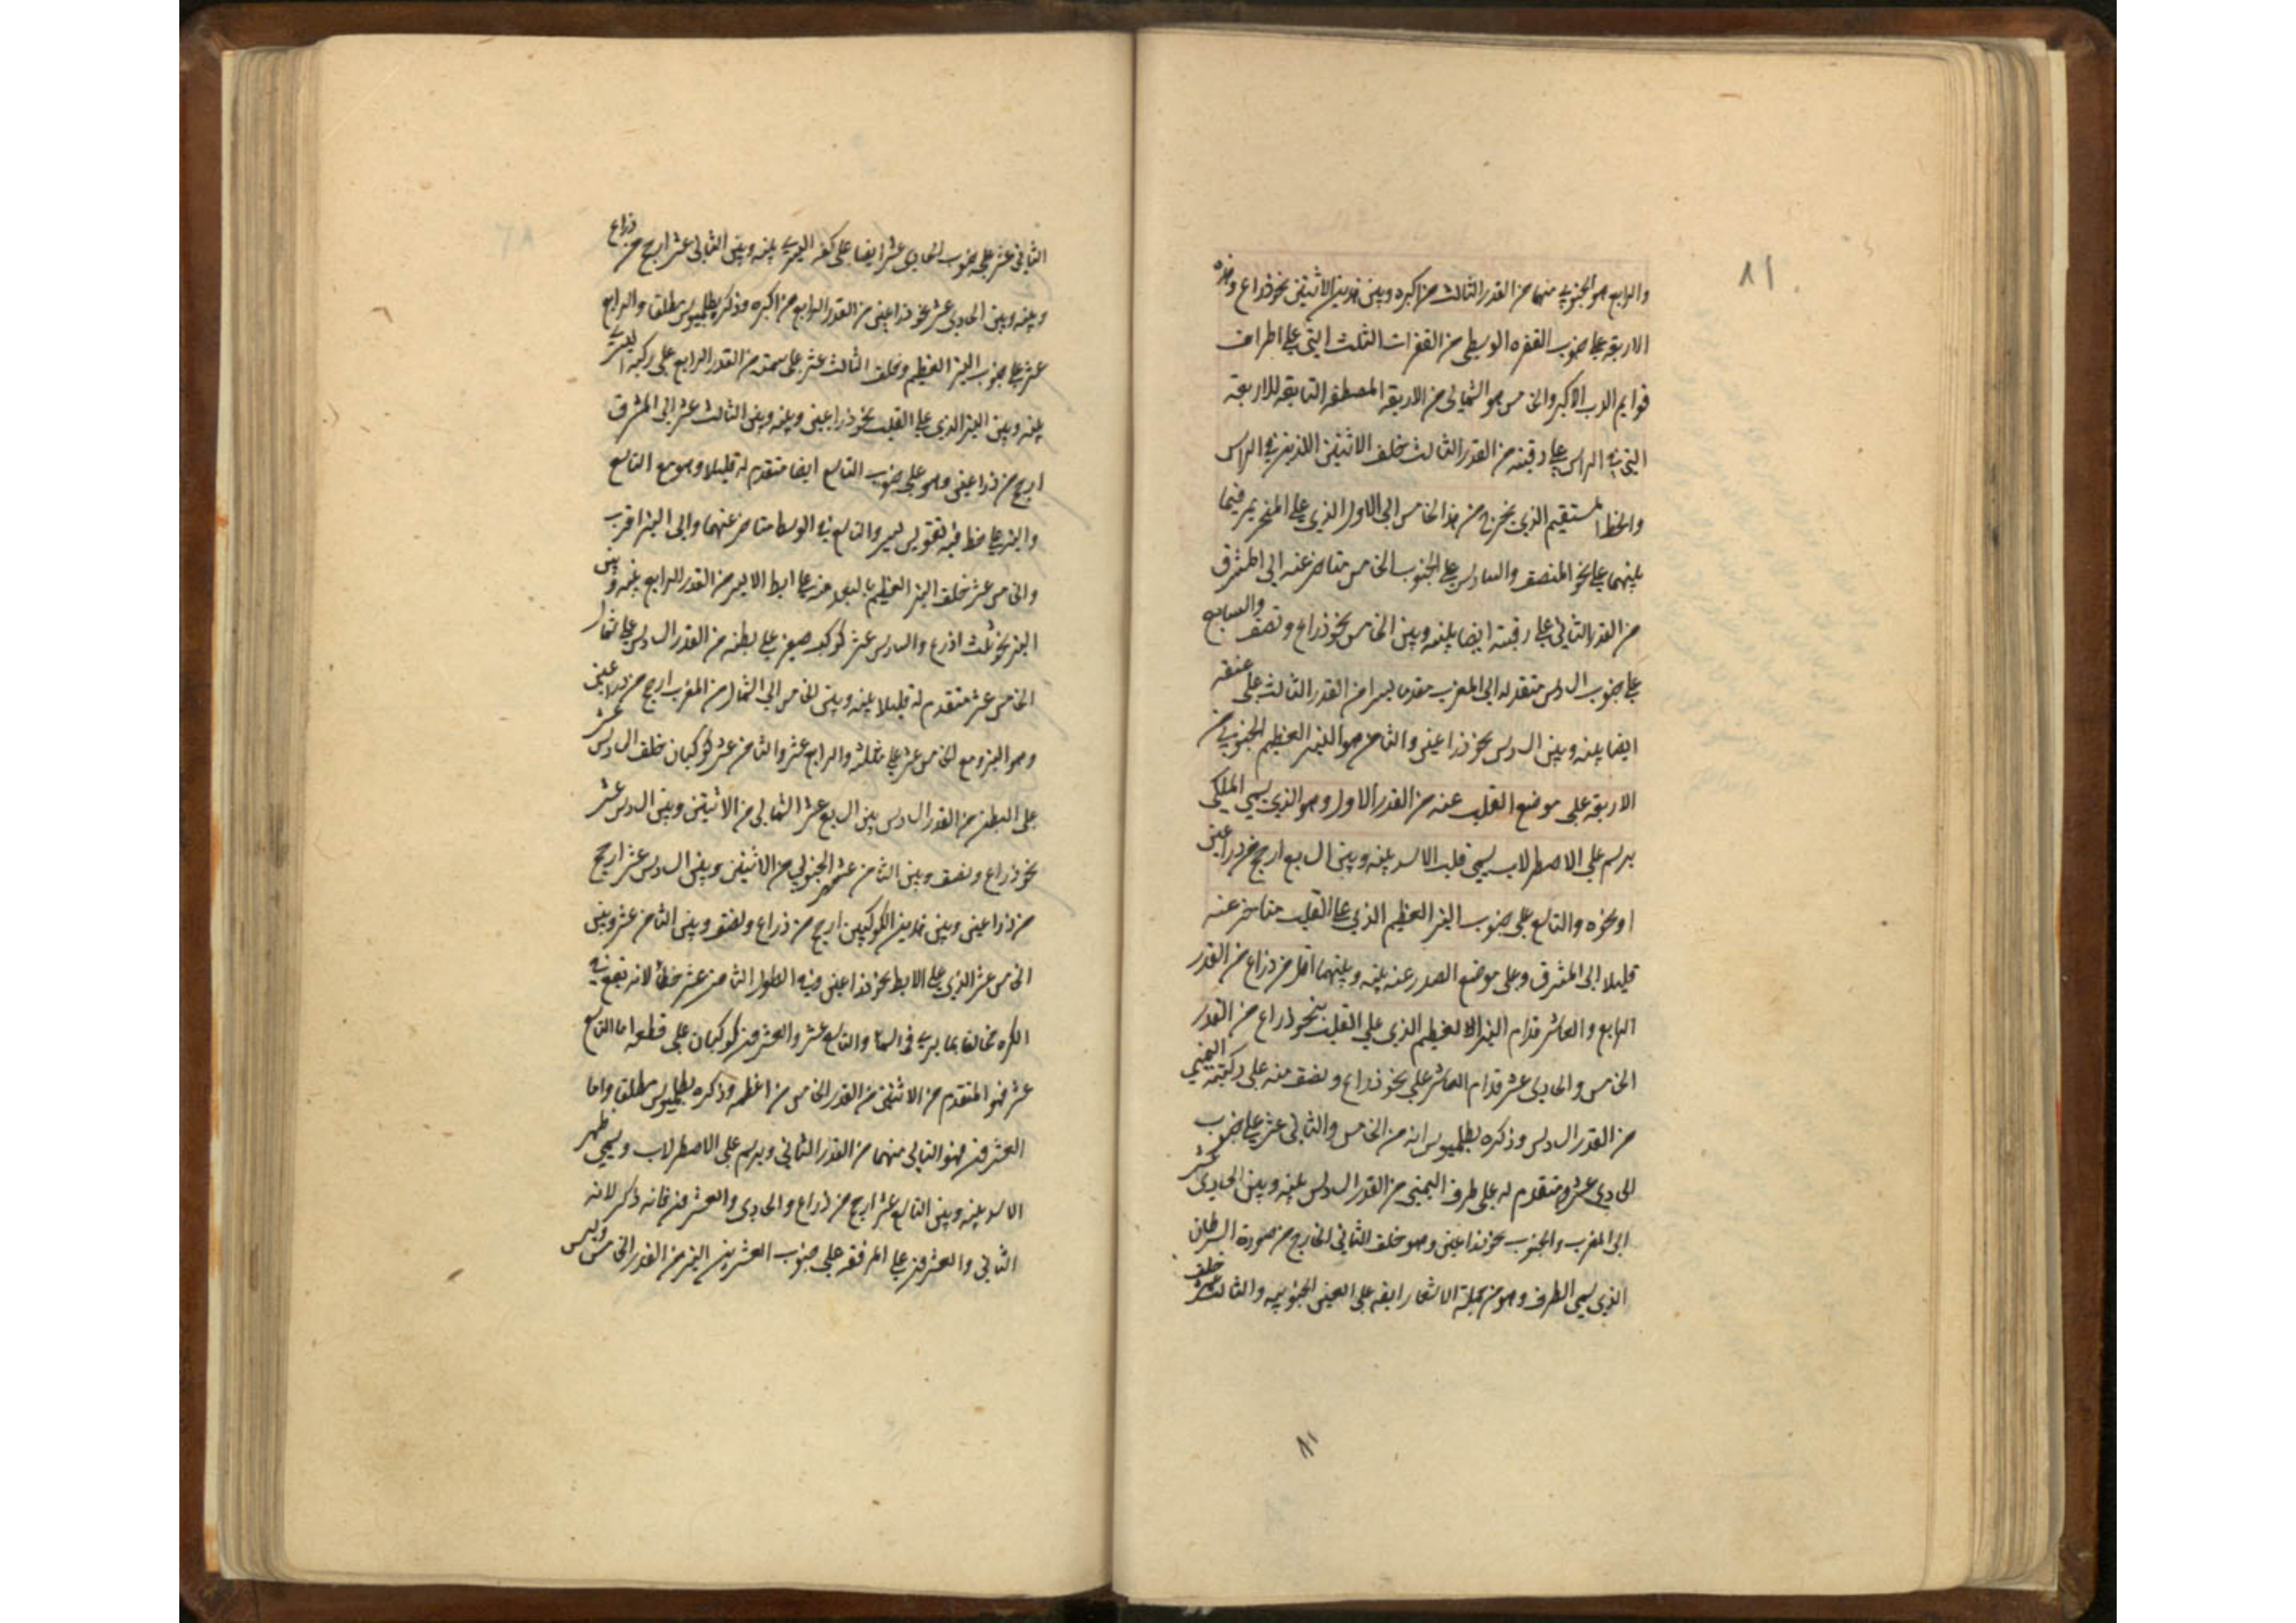 ٨١
والرابع هو الجنوبي منهما من القدر الثالث من اكبره وبين هذين الاثنين نحو ذراع وهذه
الاربعة على جنوب القفزه الوسطى من القفزات الثلث التي على اطراف
قوايم الدب الاكبر والخامس هو الشمالي من الاربعة المصطفة التابعة للاربعة
التي في الراس على رقبته من القدر الثالث خلف الاثنين اللذين في الراس
والخط المستقيم الذي يخرج من هذا الخامس الى الاول الذي على المنخر يمر فيما
بينهما على نحو المنصف والسادس على الجنوب الخامس متاخر عنه الى المشرق
من القدر الثاني على رقبته ايضا بينه وبين الخامس نحو ذراع ونصف والسابع
على جنوب السادس متقدم له الى المغرب تقدما يسيرا من القدر الثالث على عنقه
ايضا بينه وبين السادس نحو ذراعين والثامن هو النير العظيم الجنوبي من
الاربعة على موضع القلب عنه من القدر الاول وهو الذي يسمى الملكي
يرسم على الاصطرلاب يسمى قلب الاسد بينه وبين السابع ارجح من ذراعين
او نحوه والتاسع على جنوب النير العظيم الذي على القلب متاخر عنه
قليلا الى المشرق وعلى موضع الصدر عنه بينه وبينهما اقل من ذراع من القدر
الرابع والعاشر قدام النير العظيم الذي على القلب بنحو ذراع من القدر
الخامس والحادي عشر قدام العاشر على نحو ذراع ونصف منه على ركبته اليمنى
من القدر السادس وذكره بطلميوس انه من الخامس والثاني عشر على جنوب
الحادي عشر متقدم له على طرف اليمنى من القدر السادس بينه وبين الحادي عشر
الى المغرب والجنوب نحو ذراعين وهو خلف الثاني الخارج من صورة السرطان
الذي يسمى الطرف وهو من جملة الاشفار ايضه على العين الجنوبيه والثالث عشر خلف
٨١
الثاني عشر على جنوب الحادي عشر ايضا على كفه اليسرى بينه وبين الثاني عشر ارجح من ذراع
وبينه وبين الحادي عشر نحو ذراعين من القدر الرابع من اكبره وذكر بطلميوس مطلقا والرابع
عشر على جنوب النير العظيم وخلف الثالث عشر على سمته من القدر الرابع على ركبته اليسرى
بينه وبين النير الذي على القلب نحو ذراعين وبينه وبين الثالث عشر الى المشرق
ارجح من ذراعين وهو على جنوب التاسع ايضا متقدم له قليلا وهو مع التاسع
والنير على خط فيه تقويس يسير والتاسع في الوسط متاخر عنهما والى النير اقرب
والخامس عشر خلف النير العظيم بالبعد عنه على ابط الايسر من القدر الرابع بينه وبين
النير نحو ثلث اذرع والسادس عشر كوكب صغير على بطنه من القدر السادس على شمال
الخامس عشر متقدم له قليلا بينه وبين الخامس الى الشمال من المغرب ارجح من ذراعين
وهو النير ومع الخامس عشر على مثلث والرابع عشر والثامن عشر كوكبان خلف السادس عشر
على البطن من القدر السادس بين السابع عشر الشمالي من الاثنين وبين السادس عشر
نحو ذراع ونصف وبين الثامن عشر الجنوبي من الاثنين وبين السادس عشر ارجح
من ذراعين وبين هذين الكوكبين ارجح من ذراع ونصف وبين الثامن عشر وبين
الخامس عشر الذي على الابط نحو ذراعين وفي الطول الثامن عشر خطأ لانه يقع في
الكره مخالفا بما يرى في السماء والتاسع عشر والعشرون كوكبان على قطنه اما التاسع
عشر فهو المتقدم من الاثنين من القدر الخامس من اعظمه وذكره بطلميوس مطلقا واما
العشرون فهو التالي منهما من القدر الثاني ويرسم على الاصطرلاب ويسمى ظهر
الاسد بينه وبين التاسع عشر ارجح من ذراع والحادي والعشرون فانه ذكر لانه
الثاني والعشرون على المرفقة على جنوب العشرين النير من القدر الخامس وليس